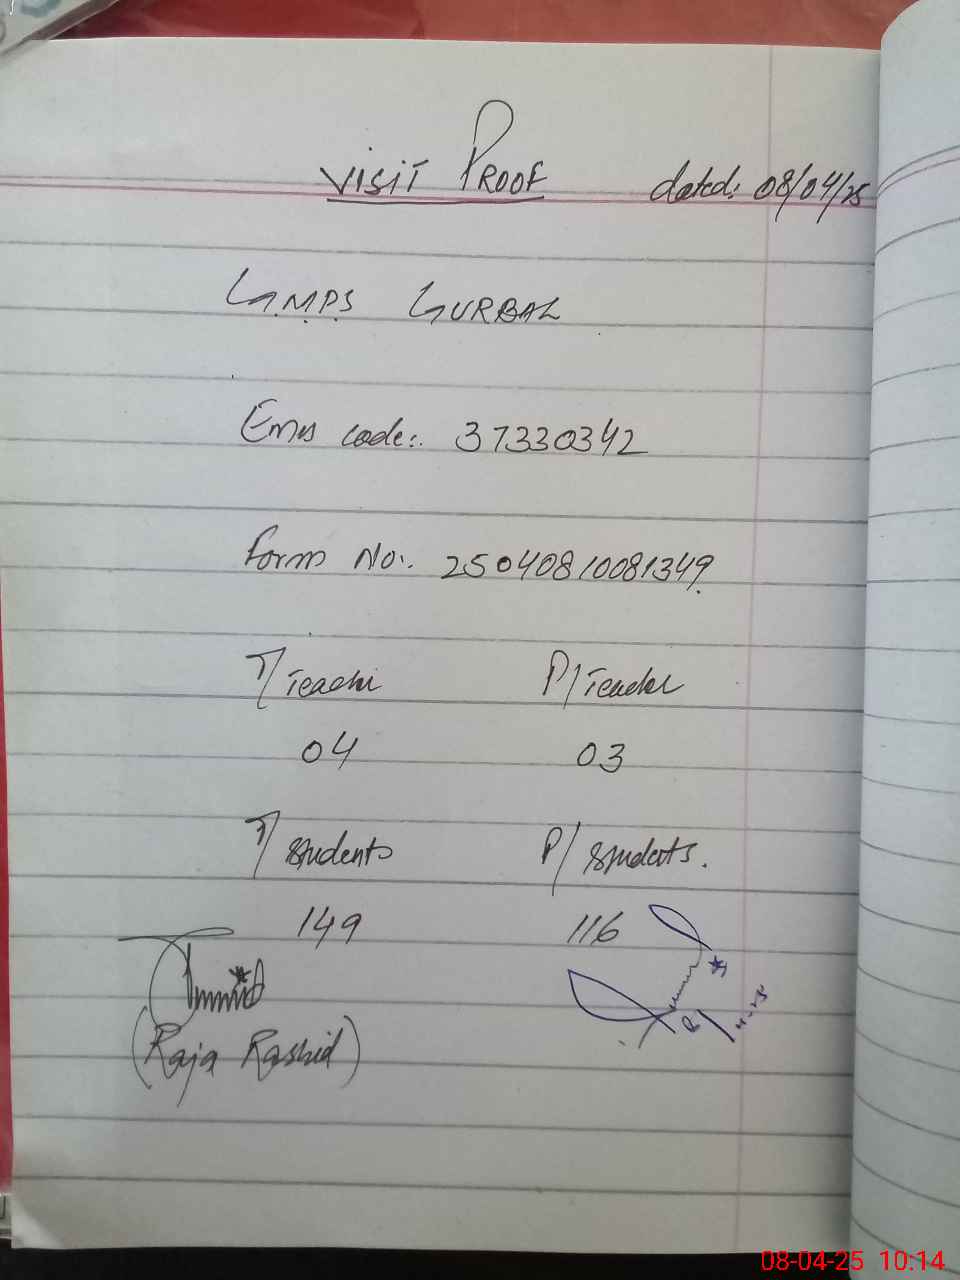 VISIT PROOF dated: 08/04/25
G.M.P.S GURBAL
Emis code:. 37330342
Form No:. 25040810081349.
T/Teacher P/Teacher
04 03
T/students P/students.
149 116
(Raja Rashid)
08-04-25 10:14